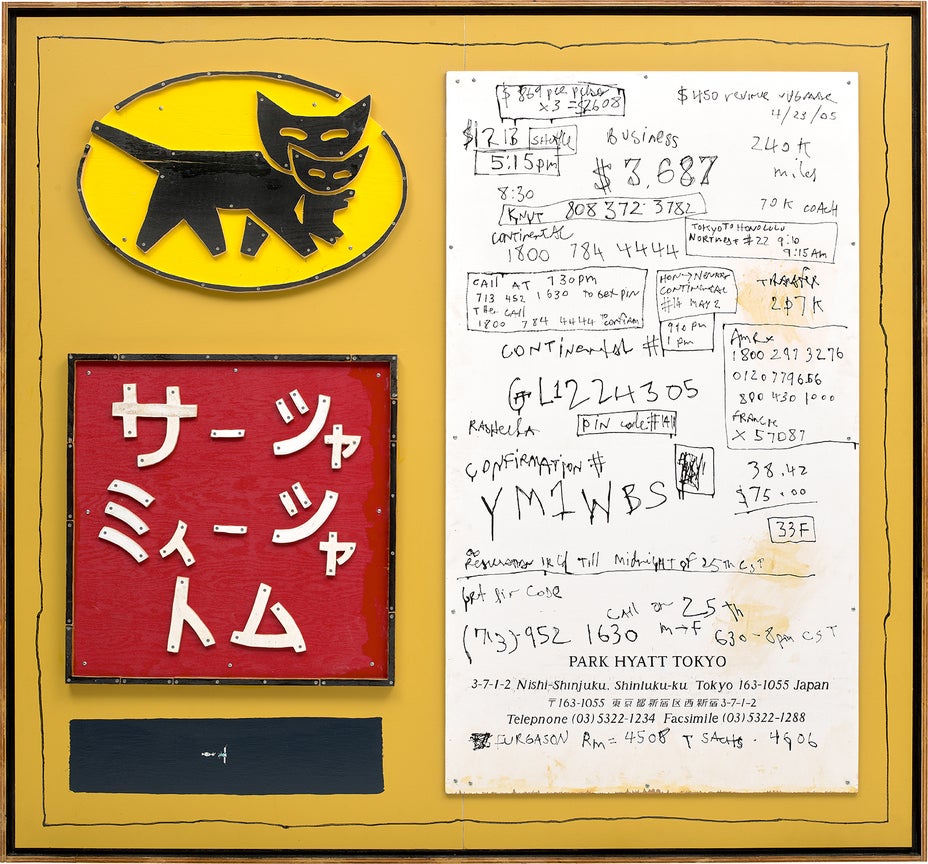 サーシャ
ミィーシャ
トム
$869 per person
x3 = $2608
$450 revenue upgrade
4/23/05
$1213 shuttle
Business
240K
miles
5:15pm
$3,687
8:30
70K coach
Knut 808 372 3782
Continental
1800 784 4444
Tokyo to Honolulu
Northwest #22 9:10
9:15 Am
Call AT 730pm
713 952 1630 to get pin
Then Call
1800 784 4444 to confirm
Hon → Newark
Continental
#14 May 2
Transfer
207K
910 pm
1 pm
Continental #
GL1224305
AmEx
1800 297 3276
0120779656
800 430 1000
Francie
X 57087
Rasheeka
pin code #
Confirmation #
YM1WBS
38.42
$75.00
33F
Reservation Till Midnight of 25th CST
Get Pin Code
Call on 25th
(713)-952 1630 m→F 630-8pm CST
PARK HYATT TOKYO
3-7-1-2, Nishi-Shinjuku, Shinluku-ku, Tokyo 163-1055 Japan
〒163-1055 東京都新宿区西新宿3-7-1-2
Telepnone (03) 5322-1234 Facsimile (03) 5322-1288
FURGASON Rm= 4508 T SACHS. 4906